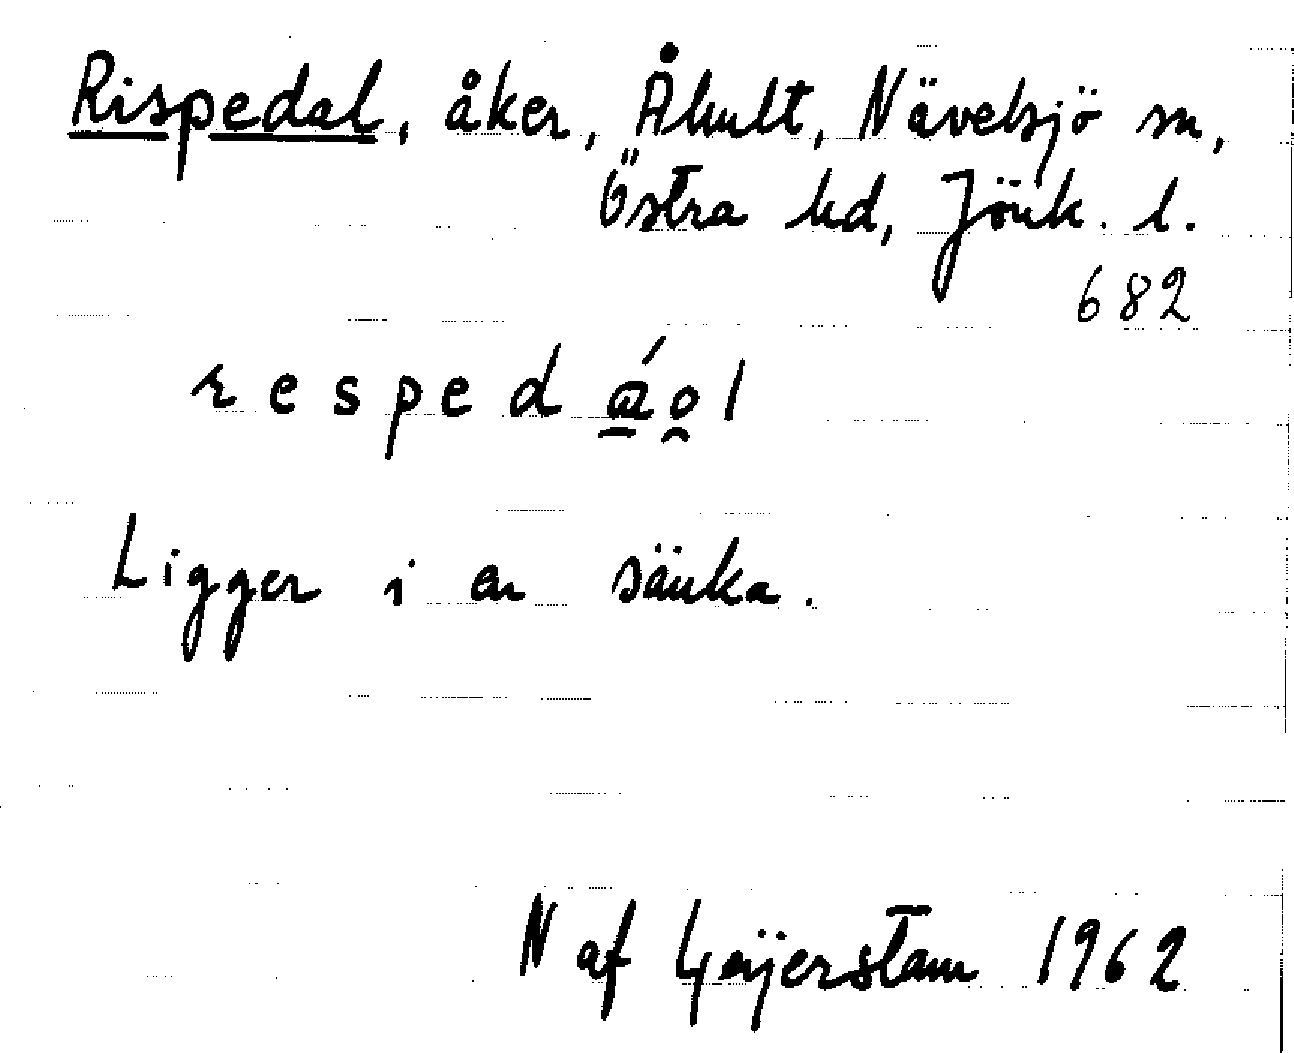 Rispedal, åker, Åhult, Nävelsjö sn,
Östra hd, Jönk. l.
682
r e s p e d á̱ o̯ l
Ligger i en sänka.
N af Geijerstam 1962